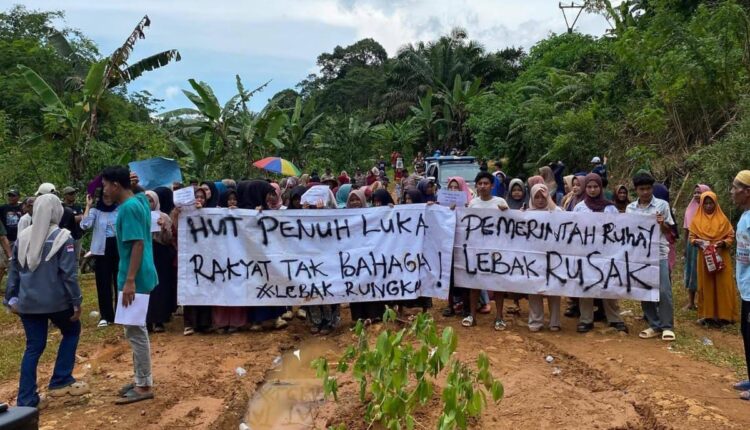 HUT PENUH LUKA
RAKYAT TAK BAHAGIA!
LEBAK RUNGKAD
PEMERINTAH RUHAY
LEBAK RUSAK